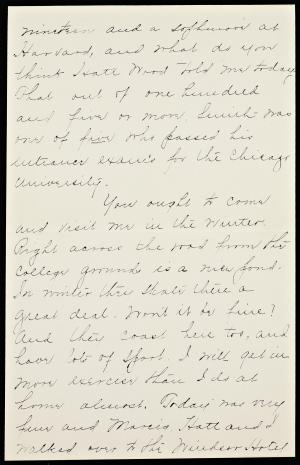 nineteen and a sophmore at
Harvard, and what do you
think Kate Wood told me today
That out of one hundred
and five or more, Smith was
one of five who passed his
entrance exams for the Chicago
University.
You ought to come
and visit me in the Winter.
Right across the road from the
college grounds is a nice pond.
In winter they skate there a
great deal. Wont it be fine?
And they coast here too, and
have lots of sport. I will get in
more exercise than I do at
home almost. Today was very
fine and Marcis Hatt and I
walked over to the Windsor Hotel